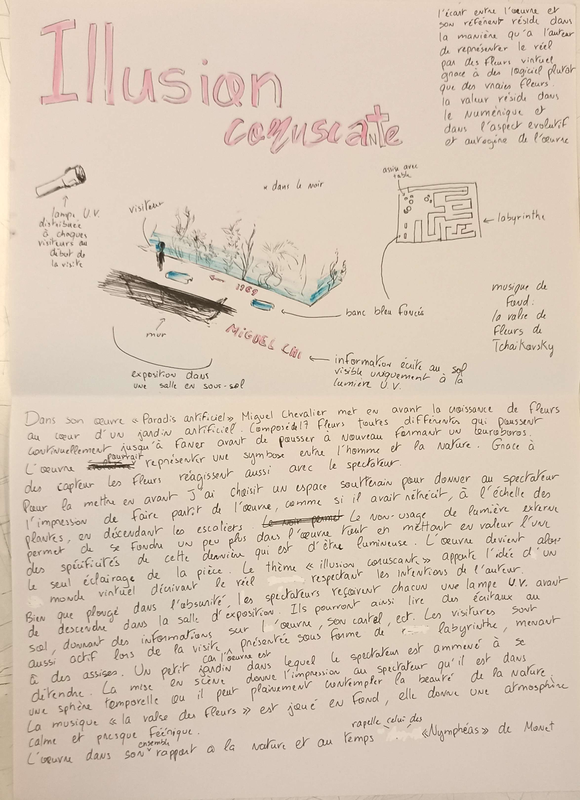 Illusion
coruscante
l'écart entre l'œuvre et
son référent réside dans
la manière qu'a l'auteur
de représenter le réel
par des fleurs virtuel
grace à des logiciel plutôt
que des vraies fleurs.
la valeur réside dans
le Numérique et
dans l'aspect évolutif
et autogène de l'œuvre
lampe U.V.
distribuée
à chaques
visiteurs au
début de
la visite
visiteur
* dans le noir
assise avec
table
labyrinthe
1959
banc bleu foncés
MIGUEL CHI
mur
exposition dans
une salle en sous-sol
information écrite au sol
visible uniquement à la
lumière U.V.
musique de
Fond:
la valse de
fleurs de
Tchaikovsky
Dans son œuvre « Paradis artificiel » Miguel Chevalier met en avant la naissance de fleurs
au cœur d'un jardin artificiel. Composé 17 fleurs toutes différentes qui poussent
continuellement jusqu'à faner avant de pousser à nouveau formant un ouroboros.
L'œuvre pourrait représenter une symbose entre l'homme et la nature. Grace à
des capteur les fleurs réagissent aussi avec le spectateur.
Pour la mettre en avant j'ai choisit un espace souterrain pour donner au spectateur
l'impression de faire partit de l'œuvre, comme si il avait rétrécit, à l'échelle des
plantes, en déscendant les escaliers Le non-usage de lumière externe
permet de se fondre un peu plus dans l'œuvre tout en mettant en valeur l'une
des spécificités de cette dernière qui est d'être lumineuse. L'œuvre devient alors
le seul éclairage de la pièce. Le thème « illusion coruscante » apporte l'idée d'un
monde virtuel décrivant le réel respectant les intentions de l'auteur.
Bien que plongé dans l'obscurité, les spectateurs reçoivent chacun une lampe U.V. avant
de descendre dans la salle d'exposition. Ils pourront ainsi lire des écritaux au
sol, donnant des informations sur l'œuvre, son cartel, ect. Les visiteurs sont
aussi actif lors de la visite car l'œuvre est présentée sous forme de labyrinthe, menant
à des assises. Un petit jardin dans lequel le spectateur est ammené à se
détendre. La mise en scène donne l'impression au spectateur qu'il est dans
une sphère temporelle ou il peut plainement contempler la beauté de la nature.
La musique « la valse des fleurs » est joué en fond, elle donne une atmosphère
calme et presque féérique.
L'œuvre dans son ensemble rapport a la nature et au temps rapelle celui des «Nymphéas» de Monet